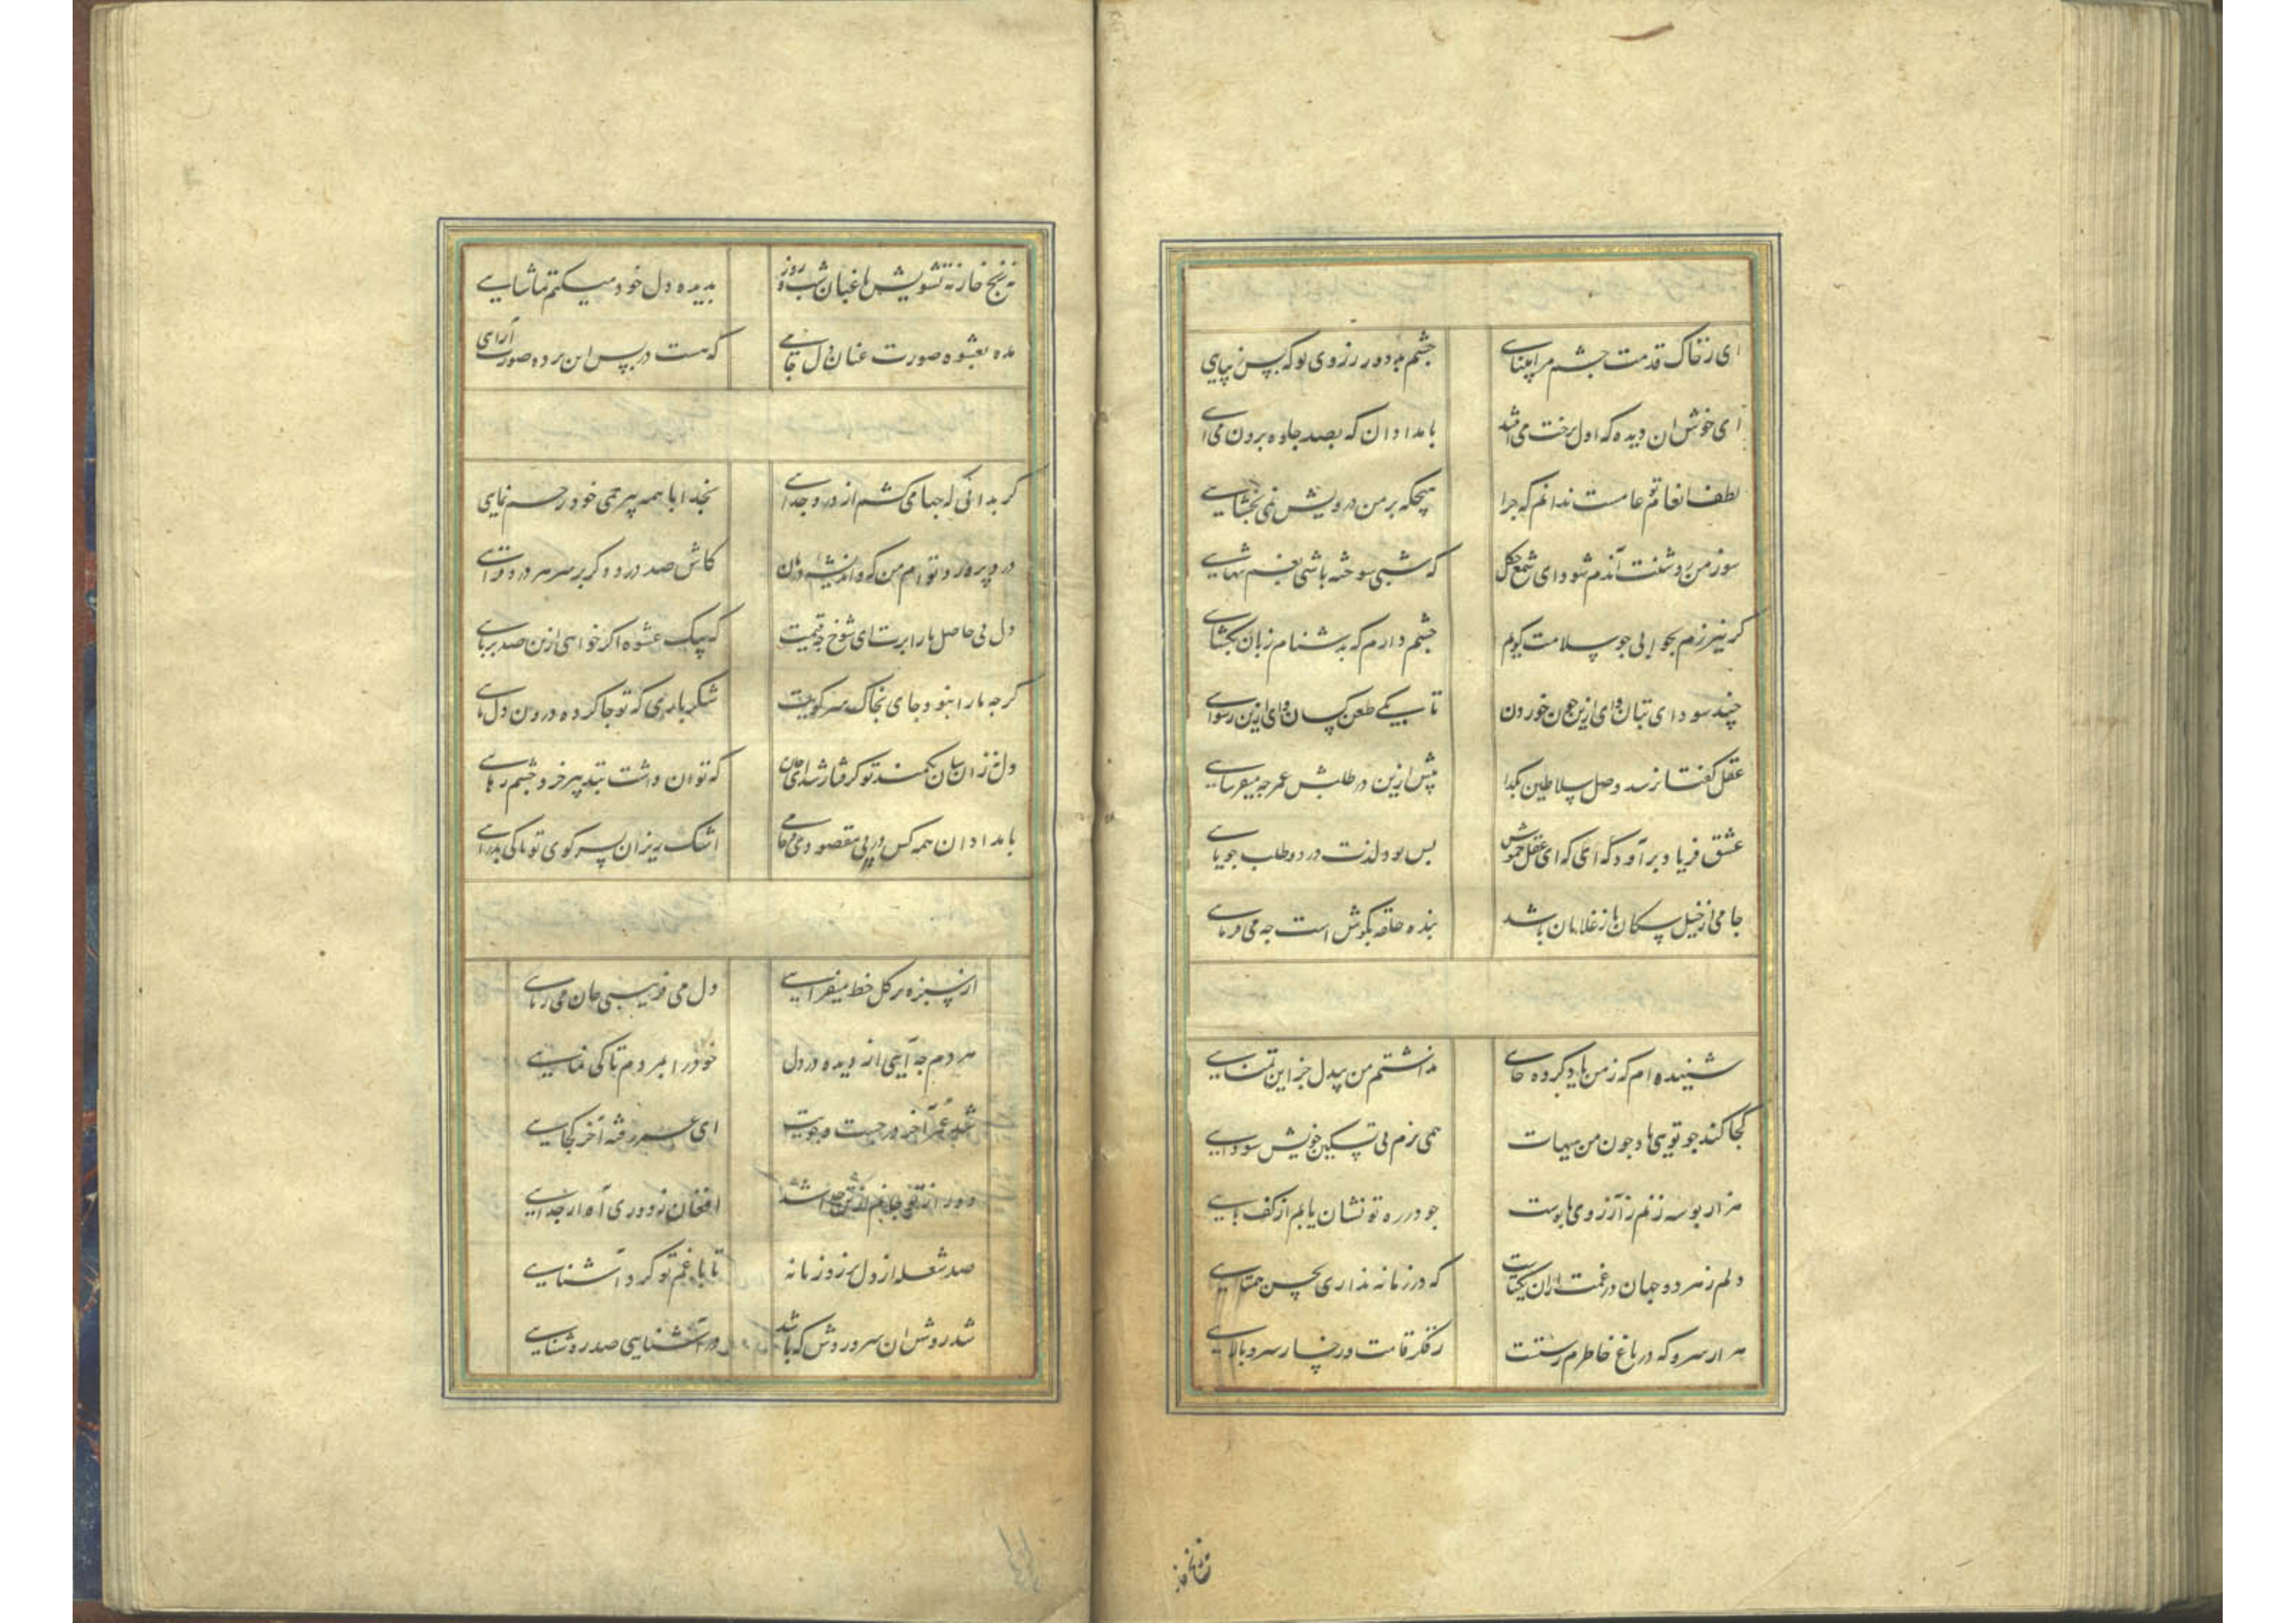 ای ز خاک قدمت چشم مرا بینای چشم بد دور ز روی تو که بس زیبای
ای خوش ان دیده که اول برخت می افتد بامدادان که بصد جلوه برون می ای
لطف انعام تو عامست ندانم که جرا هیچکه بر من درویش نمی بخشایی
سوز من روشنت آندم شود ای شمع جکل که شبی سوخته باشی بغم تنهایی
کر نیرزم بجوابی جو سلامت کویم چشم دارم که بدشنام زبان بکشای
چند سودای بتان وای ازین خون خوردن تا بکی طعن کسان وای ازین رسوای
عقل کفتا نرسد وصل سلاطین بکدا بیش ازین در طلبش عمر جه میفرسایی
عشق فریاد برآورد که ای عقل خموش بس بود لذت درد و طلب جویای
جامی از خیل سکان یا ز غلامان باشد بنده حلقه بکوش است جه می فرمای
شنیده ام که ز من یاد کرده جای ندانستم من بیدل جز این تمنایی
کجا کند جو تویی یاد جون من هیهات همی پزم پی تسکین خویش سودایی
هزار بوسه زنم ز آرزوی پابوست جو در ره تو نشان یابم از کف پایی
دلم ز هر دو جهان در غمت ازان یکتاست که در زمانه نداری بحسن همتایی
هزار سرو که در باغ خاطرم رستت ز فکر قامت و رخسار سرو بالایی
نه رنج خار نه تشویش باغبان شب و روز بدیده دل خود میکنم تماشایی
مده بعشوه صورت عنان دل جامی که هست در پس این پرده صورت آرای
کر بدانی که جها می کشم از درد جدای بخدا با همه بیرحمی خود رحم نمای
کاش صد درد دکر بر سر هر درد فزای
دل بی حاصل ما را برت ای شوخ جه قیمت که بیک عشوه اکر خواهی ازین صد بربای
کرجه ما را نبود جای بخاک سر کویت شکر باری که تو جا کرده درون دل مای
که توان داشت
بامدادان همه کس در پی مقصودی و جامی اشک ریزان بسر کوی تو تا کی بدرای
از سبزه بر کل خط میفزایی دل می فریبی جان می ربای
هر دم جه آیی از دیده در دل خود را بمردم تا کی نمایی
شد عمر آخر در جست و جویت ای عمر رفته آخر کجایی
دور از تو جانم از تن جدا شد افغان ز دوری آه از جدایی
صد شعله از دل برزد زبانه تا با غم تو کرد آشنایی
شد روش ان سرو روش که باشد در آشنایی صد روشنایی
نه رنج خار